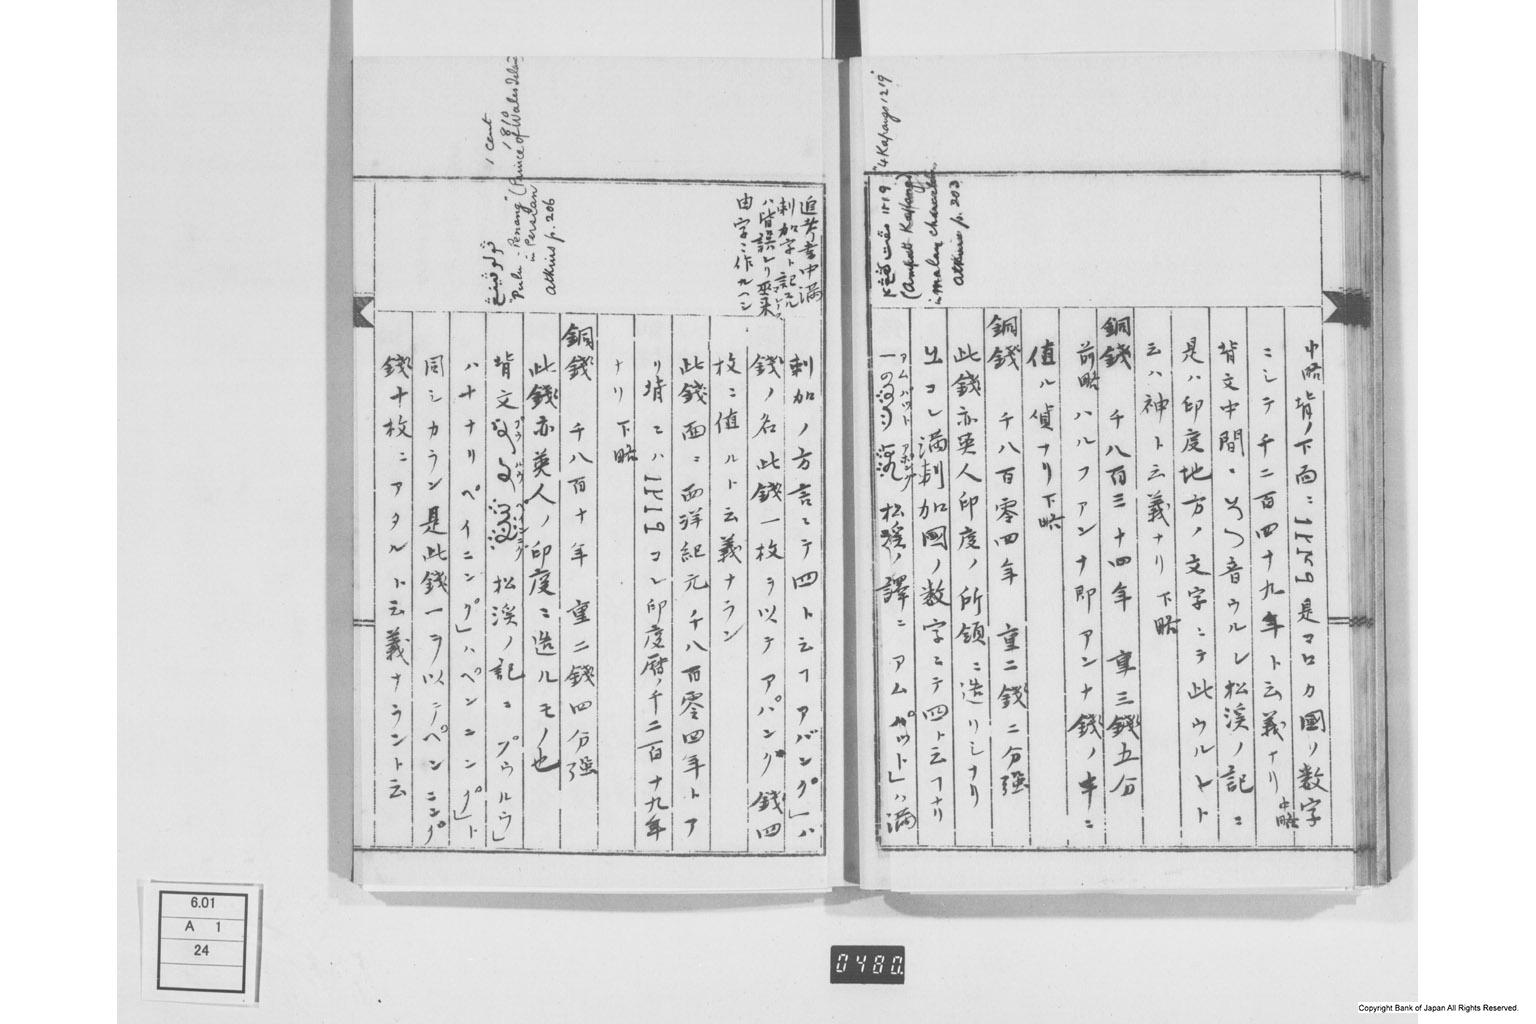 "4 Kapangs 1219"
(Ampat Kapang)
in Malay character
Atkins p. 203
中略背ノ下面ニ 是マロカ國ノ数字
ニシテ千二百四十九年ト云義ナリ 中略
背文中間ニ 音ウルレ松渓ノ記ニ
是ハ印度地方ノ文字ニテ此ウルレト
云ハ神ト云義ナリ 下略
銅錢 千八百三十四年 重三錢五分
前略 ハルフアンナ即アンナ錢ノ半ニ
値ル債ナリ下略
銅錢 千八百零四年 重二錢二分强
此錢亦英人印度ノ所領ニ造リシナリ
コレ満剌加國ノ数字ニテ四ト云フナリ
松渓ノ譯ニアムパツト」ハ満
追考書中満
剌加字ト記スル
ハ皆誤ナリ
由字ニ作ルヘシ
剌加ノ方言ニテ四ト云フアパング」ハ
錢ノ名此錢一枚ヲ以テアパング錢四
枚ニ値ルト云義ナラン
此錢面ニ西洋紀元千八百零四年トア
リ背ニハ コレ印度暦ノ千二百十九年
ナリ 下略
1 cent
1810
"Pulu-Penang" (Prince of Wales Island)
in Persian
Atkins p. 206
銅錢 千八百十年 重二錢四分强
此錢亦英人ノ印度ニ造ルモノ也
背文 松渓ノ記ニプウルウ」
ハナナリペイニング」ハペンニング」ト
同シカラン是此錢一ヲ以テペンニング
錢十枚ニアタルト云義ナラント云
6.01
A 1
24
0480.
Copyright Bank of Japan All Rights Reserved.